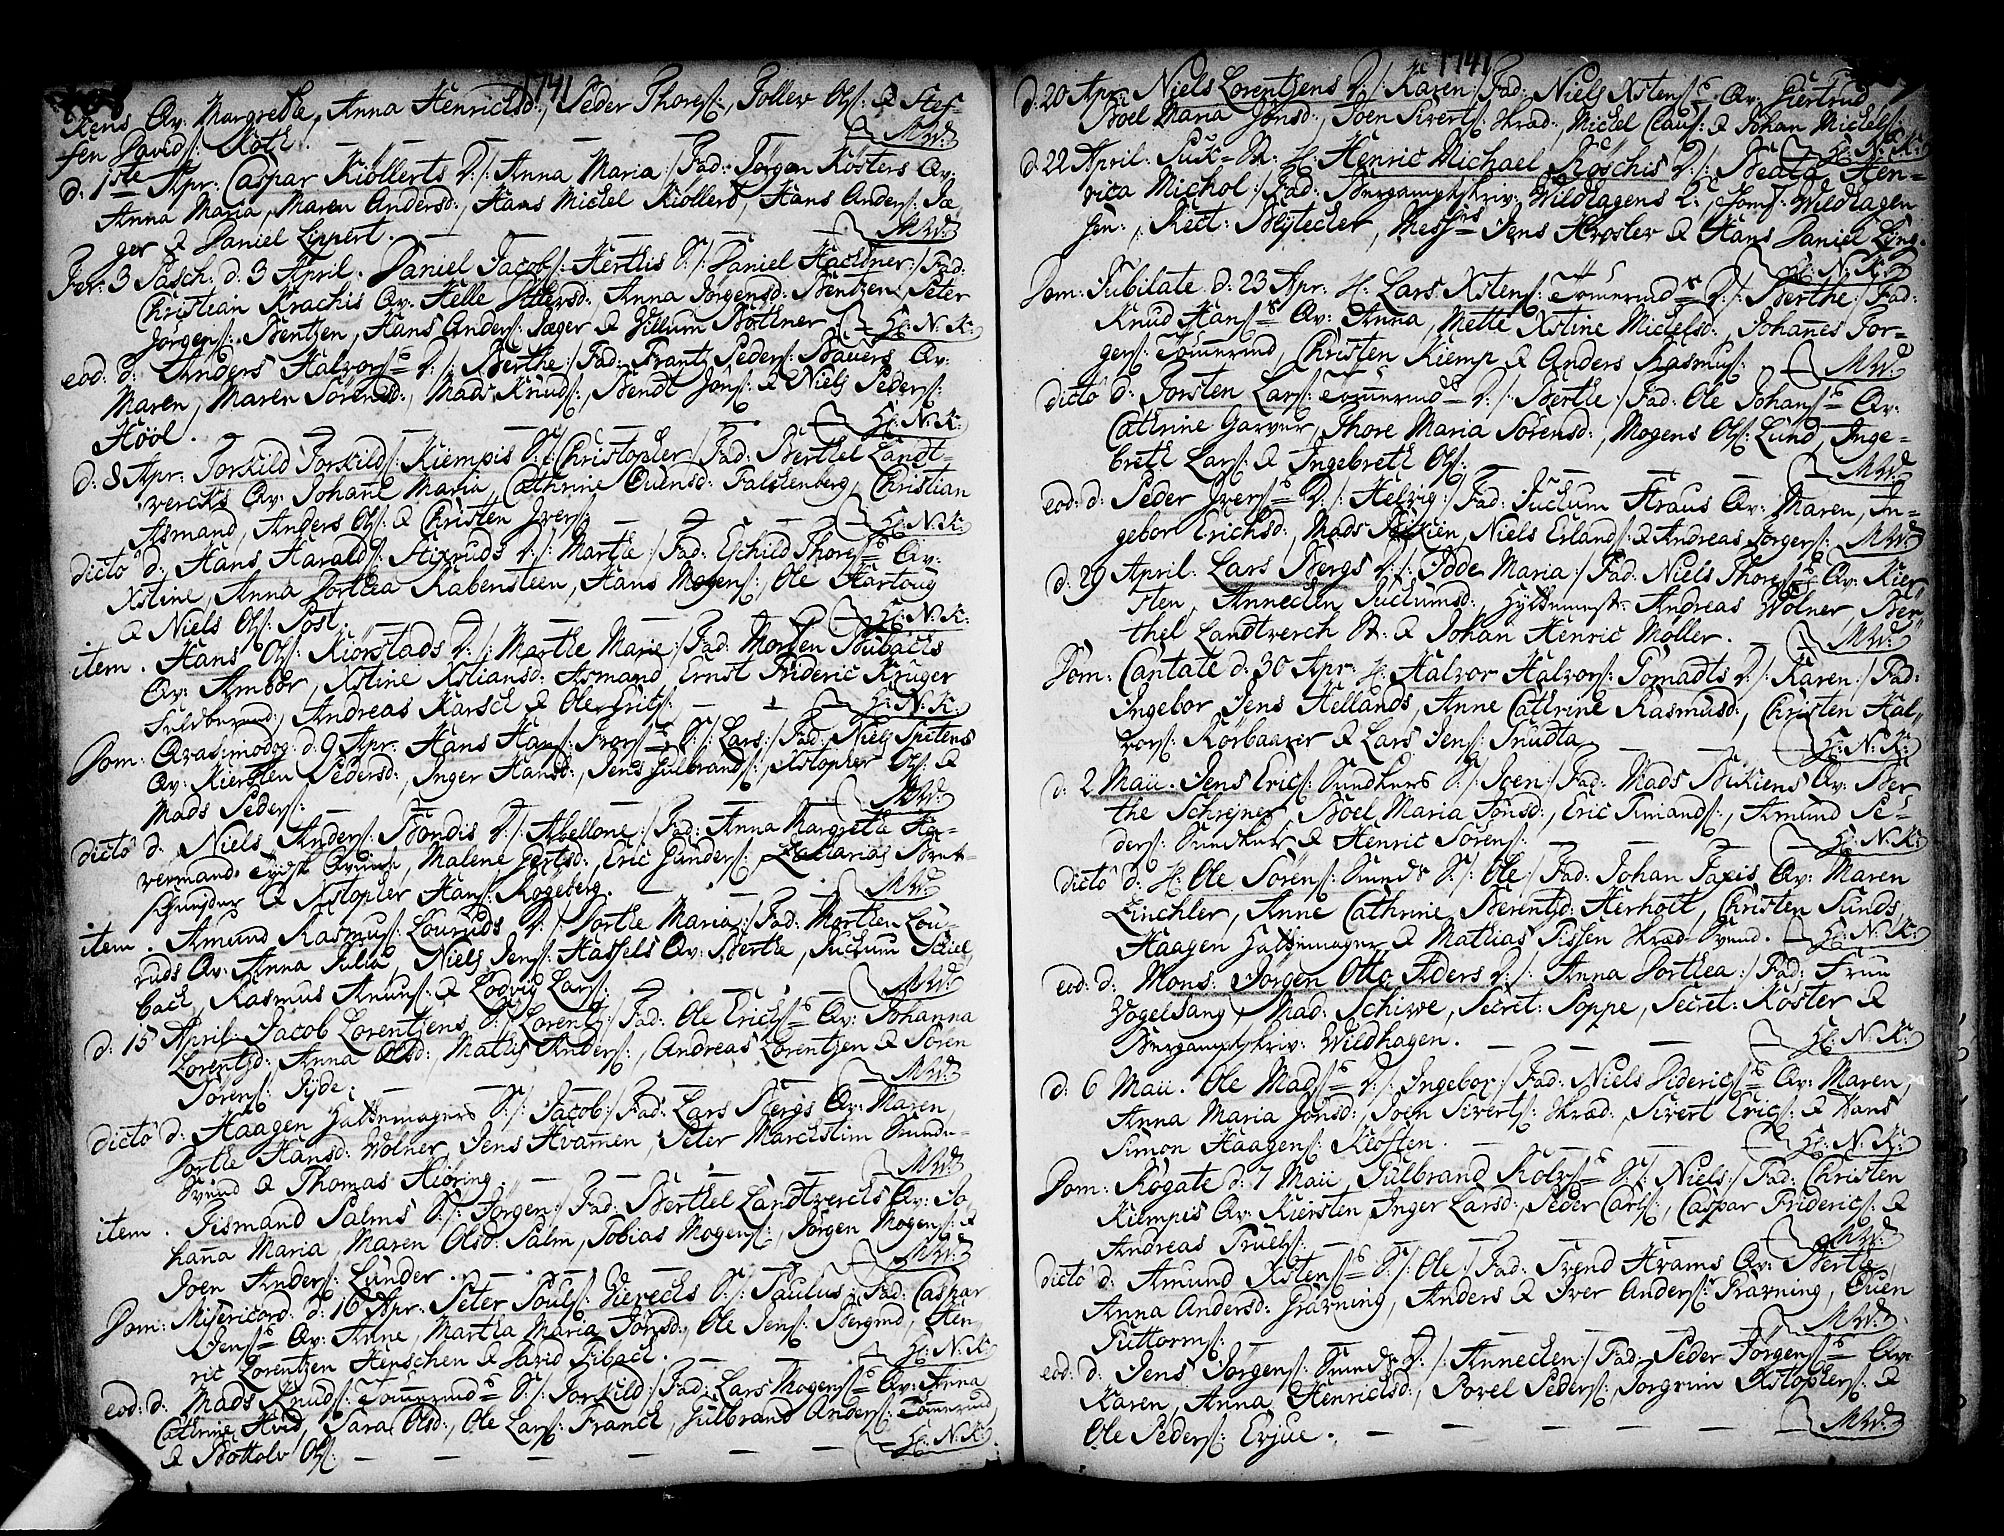 1741
stens Qv: Margrethe, Anna Henrichsd:, Peder Thores:, Tollev Ols: & Stef-
fen Davids: Roth. MW:
d: 1ste Apr: Caspar Kiöllerts D:/: Anna Maria:/ Fad: Jørgen Kösters Qv:
Anna Maria, Maren Andersd:, Hans Michel Kiöllert, Hans Anders: Jæ-
ger & Daniel Lippert. MW:
Fer: 3 Pasch: d: 3 April. Daniel Jacobs: Herthis S:/: Daniel:/ Fad:
Christian Krachis Qv: Helle Pettersd: Anna Jørgensd: Bentzen, Peter
Jörgens: Bentzen, Hans Anders: Jæger & Villum Böttner H: N: K:
eod: d: Anders Halvors: D:/: Berthe:/ Fad: Frantz Peders: Bauers Qv:
Maren, Maren Sörensd:, Mads Knuds:, Bendt Jons: & Niels Peders:
Hööl. H: N: K:
d: 8 Apr: Torkild Torkilds: Kiempis S:/: Christopher:/ Fad: Berthel Landt-
vercks Qv: Johane Maria, Cathrine Ouensd: Falckenberg, Christian
Asmand, Anders Ols: & Christen Ivers: H: N: K:
dicto d: Hans Haralds: D:/: Marthe:/ Fad: Eschild Thores: Qv:
Xstine, Anna Dorthea Rabensteen, Hans Mogens:, Ole Hartvig
& Niels Ols: Post. H: N: K:
item. Hans Ols: Kiörstads D:/: Marthe Marie:/ Fad: Morten Bubachs
Qv: Ambor, Xstine Xstiansd: Asmand, Ernst Frideric Krüger
Andreas Karsch & Ole Erics: H: N: K:
Dom: Qvasimodog: d: 9 Apr: Hans Hans: S:/: Lars:/ Fad: Niels Spitens
Qv: Kiersten Pedersd:, Inger Hansd:, Jens Gulbrands:, Xstopher Ols: &
Mads Peders: MW:
dicto d: Niels Anders: Bondis D:/: Abellone:/ Fad: Anna Margrethe Ha-
vermand, Malene Gertsd:, Eric Gunders:, Zacharias
& Xstopher Hans: Kogeberg. MW:
item. Amund Rasmus: Louruds D:/: Dorthe Maria:/ Fad: Morthen Lou-
ruds Qv: Anna Julia, Niels Jens: Hassels Qv: Berthe, Guttorm
bach, Rasmus Amuns: & Lodvig Lars: MW:
d: 15 April: Jacob Lorentzens S:/: Lorentz:/ Fad: Ole Erichs: Qv: Johanna
Lorentzd: Anna Olsd:, Mathis Anders:, Andreas Lorentzen & Sören
Sörens: Syde: MW:
dicto d: Haagen S:/: Jacob:/ Fad: Lars Bergs Qv: Maren,
Dorthe Hansd: Wolner, Jens Hvamen, Peter Marchstim
Svend & Thomas Hiöring. MW:
item. Tismand Palms S:/: Jörgen:/ Fad: Berthel Landtvercks Qv: Jo-
hana Maria, Maren Olsd: Palm, Tobias Mogens:, Jørgen Mogens: &
Joen Anders: Lunder. MW:
Dom: Misericord: d: 16 Apr: Peter Pouls: Vierechs S:/: Paulus:/ Fad: Caspar
Jens: Qv: Anne, Martha Maria Jönsd:, Ole Jens: Bergmd, Hen-
ric Lorentzen Henschen & David Zibach. H: N: K:
eod: d: Mads Knuds: Tömermd S:/: Torkild:/ Fad: Lars Mogens: Qv: Anna
Cathrine Hvid, Sara Olsd:, Ole Lars: Franck, Gulbrand Anders: Tömermd,
& Bottolv Ols: H: N: K:
1741
d: 20 Apr: Niels Lorentzens D:/: Karen:/ Fad: Niels Xstens: Qv: Giertrud,
Boel Maria Jönsd:, Joen Siverts: Skræd:, Michel Claus: & Johan Michels:
H: N: K:
d: 22 April. Henric Michael Röschis D:/: Beata Hen-
rica Michol:/ Fad: Bergamptskriv: Wildhagens L:, Jomf: Wildhagen
Jun:, Rect: Blytecker, Mesr: Jens Kroslev & Hans Daniel Ling.
H: N: K:
Dom: Jubilate d: 23 Apr: H: Lars Xstens: Tömermd D:/: Berthe:/ Fad:
Knud Hans: Qv: Anna, Mette Xstine Michelsd:, Johanes Jör-
gens: Tömermd, Christen Kiemp & Anders Rasmus: MW:
dicto d: Torsten Lars: Tömermd D:/: Berthe:/ Fad: Ole Johans: Qv:
Cathrine Garver, Thore Maria Sörensd:, Mogens Ols: Lund, Inge-
breth Lars: & Ingebreth Ols: MW:
eod: d: Peder Ivers: D:/: Helvig:/ Fad: Guttorm Straus Qv: Maren, In-
gebor Erichsd:, Mads Bikien, Niels Erlands: & Andreas Jörgens: MW:
d: 29 April. Lars Bergs D:/: Odde Maria:/ Fad: Niels Thores: Qv: Kier-
sten, Annechen Guttumsd:, Andreas Wolner, Ber-
thel Landtverch & Johan Henric Möller. MW:
Dom: Cantate d: 30 Apr: H: Halvor Halvors: Tomadts D:/: Karen:/ Fad:
Ingebor Jens Hellands, Anne Cathrine Rasmusd:, Christen Hal-
vors: Körbaarer & Lars Jens: Snudta. H: N: K:
d: 2 Maii. Jens Erics: S:/: Joen:/ Fad: Mads Bikiens Qv: Ber-
the Schrejner, Boel Maria Jönsd:, Eric Simands:, Amund Pe-
ders: & Henric Sörens: H: N: K:
dicto d: H: Ole Sörens: S:/: Ole:/ Fad: Johan Faxis Qv: Maren
Linchler, Anne Cathrine Berentzd: Herholt, Christen Sunds,
Haagen & Mathias Tissen Skræd-Svend. H: N: K:
eod: d: Mons: Jörgen Otto Aders D:/: Anna Dorthea:/ Fad: Fruu
Vogelsang, Mad: Schiwe, Secret: Poppe, Secret: Köster &
Bergamptskriv: Wildhagen. H: N: K:
d: 6 Maii. Ole Mads: D:/: Ingebor:/ Fad: Niels Diderics: Qv: Maren,
Anna Maria Jönsd:, Joen Siverts: Skræd:, Sivert Erics: & Hans
Simon Haagens: Kloften. H: N: K:
Dom: Rogate d: 7 Maii, Gulbrand Rolvs: S:/: Niels:/ Fad: Christen
Kiempis Qv: Kiersten, Inger Larsd:, Peder Carls:, Caspar Friderics: &
Andreas Truels: MW:
dicto d: Amund Xstens: S:/: Ole:/ Fad: Svend Hvams Qv: Berthe,
Anna Andersd: Gravning, Anders & Iver Anders: Gravning, Ouen
Guttorms: MW:
eod: d: Jens Jörgens: D:/: Annechen:/ Fad: Peder Jörgens: Qv:
Karen, Anna Henrichsd:, Povel Peders:, Torgrim Xstophers: &
Ole Peders: Erjue. MW: